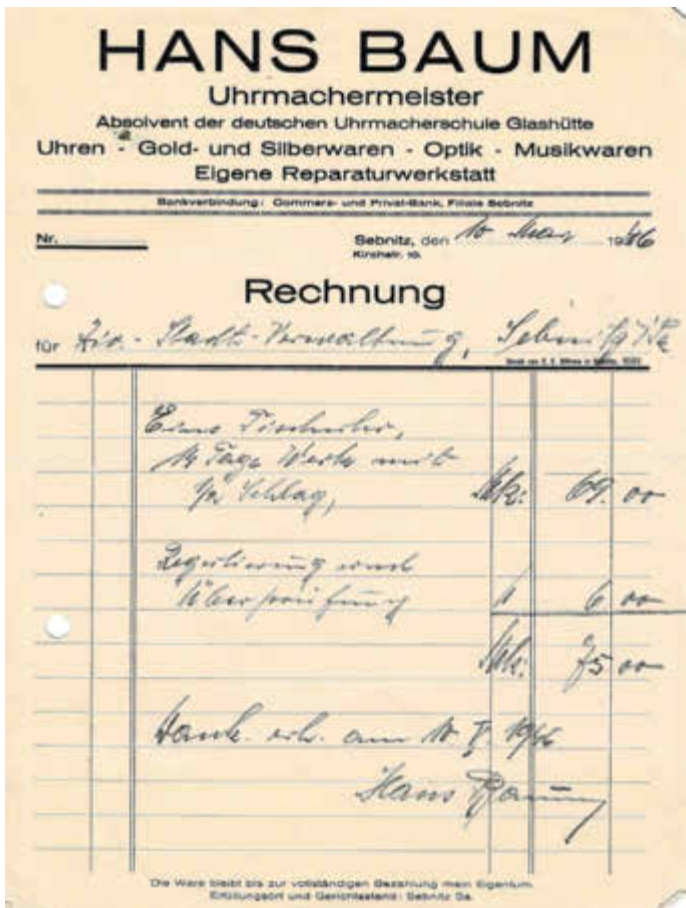 HANS BAUM
Uhrmachermeister
Absolvent der deutschen Uhrmacherschule Glashütte
Uhren - Gold- und Silberwaren - Optik - Musikwaren
Eigene Reparaturwerkstatt
Bankverbindung: Commerz- und Privat-Bank, Filiale Sebnitz
Nr. Sebnitz, den 10 1946
Kirchstr. 10.
Rechnung
für Stadt-Verwaltung, Sebnitz
Eine Tischuhr,
14 Tage Werk mit
1/2 Schlag, Mk: 69.00
Regulierung und
Überprüfung " 6 00
Mk: 75 00
Dank. erh. am 10. V. 1946
Hans Baum
Die Ware bleibt bis zur vollständigen Bezahlung mein Eigentum.
Erfüllungsort und Gerichtsstand: Sebnitz Sa.